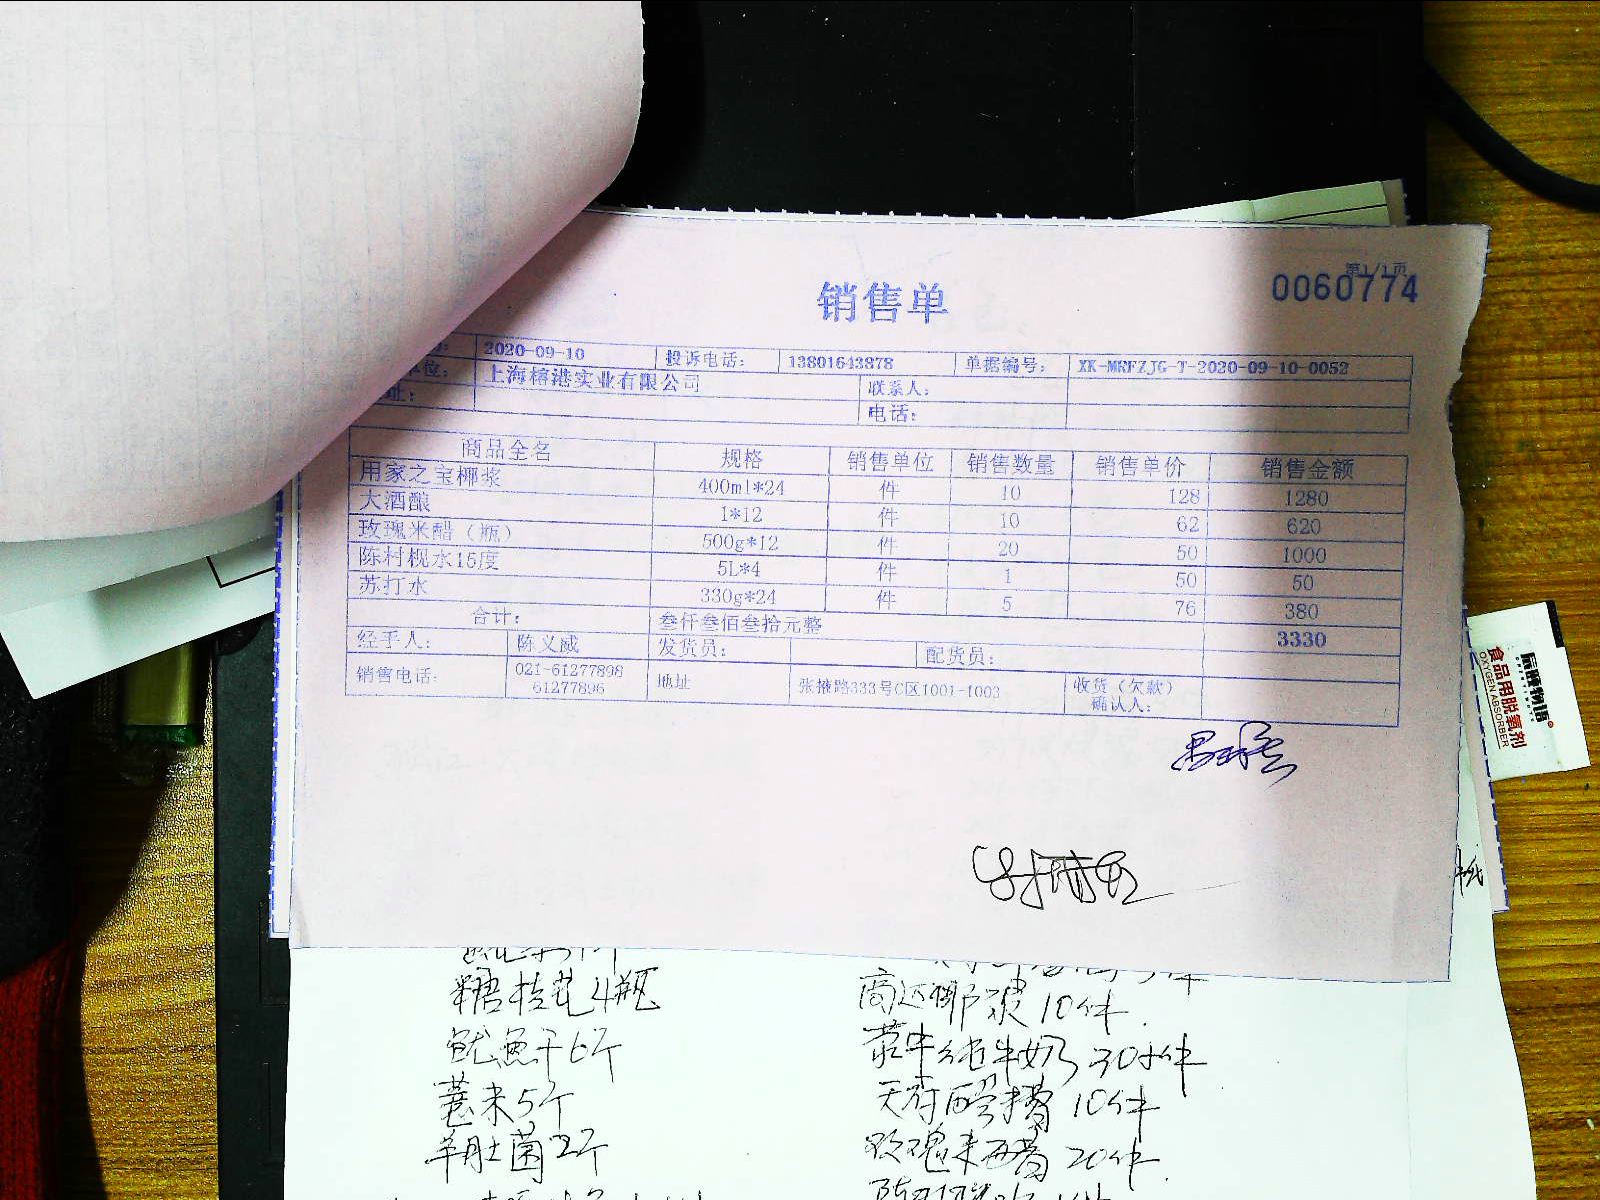 第1/1页
0060774
销售单
2020-09-10 投诉电话： 13801643878 单据编号： XK-MRFZJG-T-2020-09-10-0052
位： 上海榕港实业有限公司 联系人：
址： 电话：
商品全名 规格 销售单位 销售数量 销售单价 销售金额
用家之宝椰浆 400ml*24 件 10 128 1280
大酒酿 1*12 件 10 62 620
玫瑰米醋（瓶） 500g*12 件 20 50 1000
陈村枧水15度 5L*4 件 1 50 50
苏打水 330g*24 件 5 76 380
合计： 叁仟叁佰叁拾元整 3330
经手人： 陈义威 发货员： 配货员：
销售电话： 021-61277898 61277896 地址 张掖路333号C区1001-1003 收货（欠款）确认人：
食品用脱氧剂
OXYGEN ABSORBER
糖桂花4瓶
鱿鱼干6个
薏米5个
羊肚菌2个
高达椰浆10件
蒙牛纯牛奶30件
10件
玫瑰米醋20件